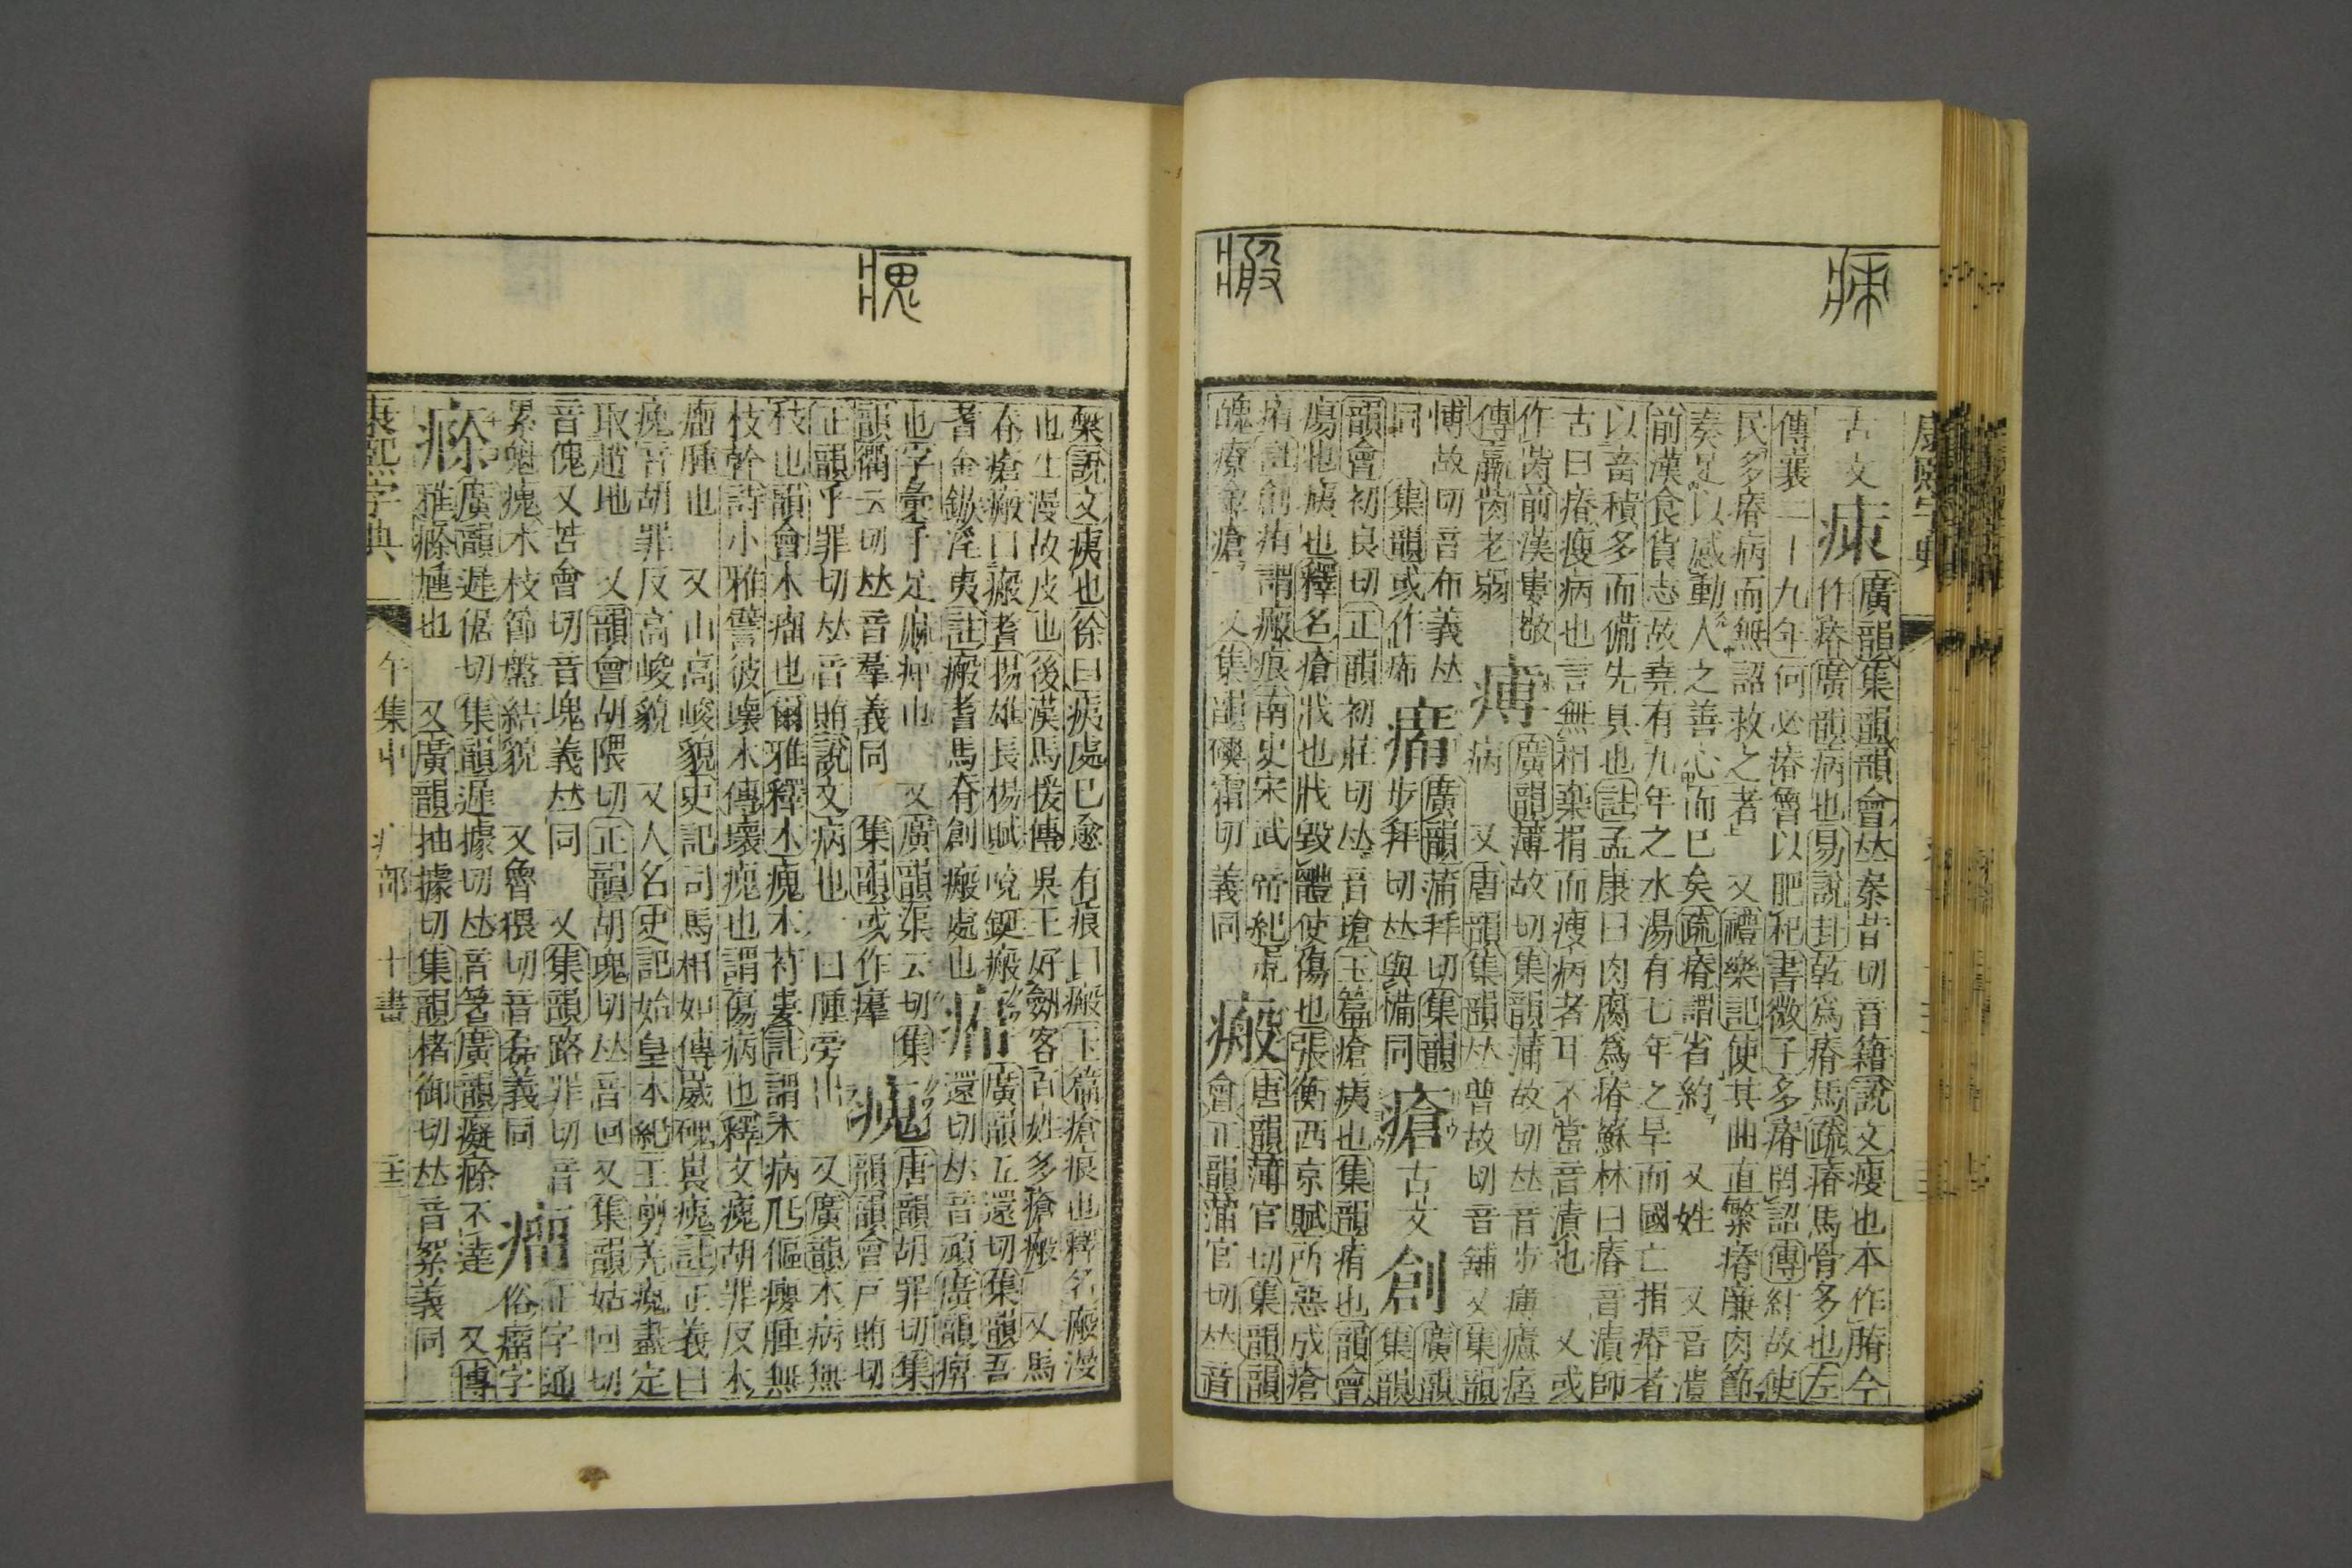 康熙字典
古文㾊廣韻集韻韻會𠀤秦昔切音籍說文瘦也本作膌今
作瘠廣韻病也易說卦乾爲瘠馬疏瘠馬骨多也左
傳襄二十九年何必瘠魯以肥杞書微子多瘠罔詔傳紂故使
民多瘠病而無詔救之者 又禮樂記使其曲直繁瘠廉肉節
奏足以感動人之善心而已矣疏瘠謂省約 又姓 又音漬
前漢食貨志故堯有九年之水湯有七年之旱而國亡捐瘠者
以畜積多而備先具也註孟康曰肉腐爲瘠蘇林曰瘠音漬師
古曰瘠瘦病也言無相棄捐而瘦病者耳不當音漬也 又或
作㱴前漢婁敬
傳羸胔老弱 㾭病 廣韻薄故切集韻蒲故切𠀤音步
又唐韻集韻𠀤普故切音鋪又集韻
博故切音布義𠀤
同 集韻或作㾈 㾱廣韻蒲拜切集韻
步拜切𠀤與憊同 瘡古文創廣韻集韻
韻會初良切正韻初莊切𠀤音瑲玉篇瘡痍也集韻痏也韻會
瘍也痍也釋名瘡戕也戕毀體使傷也張衡西京賦所惡成瘡
痏註創痏謂瘢痕南史宋武帝紀虎
魄療金瘡 又集韻磢霜切義同 瘢唐韻薄官切集韻韻
會正韻蒲官切𠀤音
槃說文痍也徐曰痍處已愈有痕曰瘢玉篇瘡痕也釋名瘢漫
也生漫故皮也後漢馬援傳吳王好劒客百姓多瘡瘢 又馬
脊瘡瘢曰瘢耆揚雄長楊賦哾鋋瘢
耆金鏃淫夷註瘢耆馬脊創瘢處也 廣韻五還切集韻吾
還切𠀤音頑廣韻痹
也字彙手足痲痹也 又廣韻渠云切集
韻衢云切𠀤音羣義同 集韻或作㿏 瘣唐韻胡罪切集
韻韻會戸賄切
正韻乎罪切𠀤音賄說文病也一曰腫旁出 又廣韻木病無
枝也韻會木瘤也爾雅釋木瘣木苻婁註謂木病尫傴癭腫無
枝幹詩小雅譬彼壞木傳壞瘣也謂傷病也釋文瘣胡罪反木
瘤腫也 又山高峻貌史記司馬相如傳崴磈㠥瘣註正義曰
瘣音胡罪反高峻貌 又人名史記始皇本紀王翦羌瘣盡定
取趙地 又韻會胡隈切正韻胡瑰切𠀤音回又集韻姑回切
音傀又苦會切音塊義𠀤同 又集韻路罪切音 正字通
累瘣木枝節盤結貌 又魯猥切音磊義同 瘤俗瘤字
瘵廣韻遲倨切集韻遲據切𠀤音箸廣韻癡瘵不達 又博
雅瘵瘇也 又廣韻抽據切集韻楮御切𠀤音絮義同
康熙字典 午集中 疒部 十畫